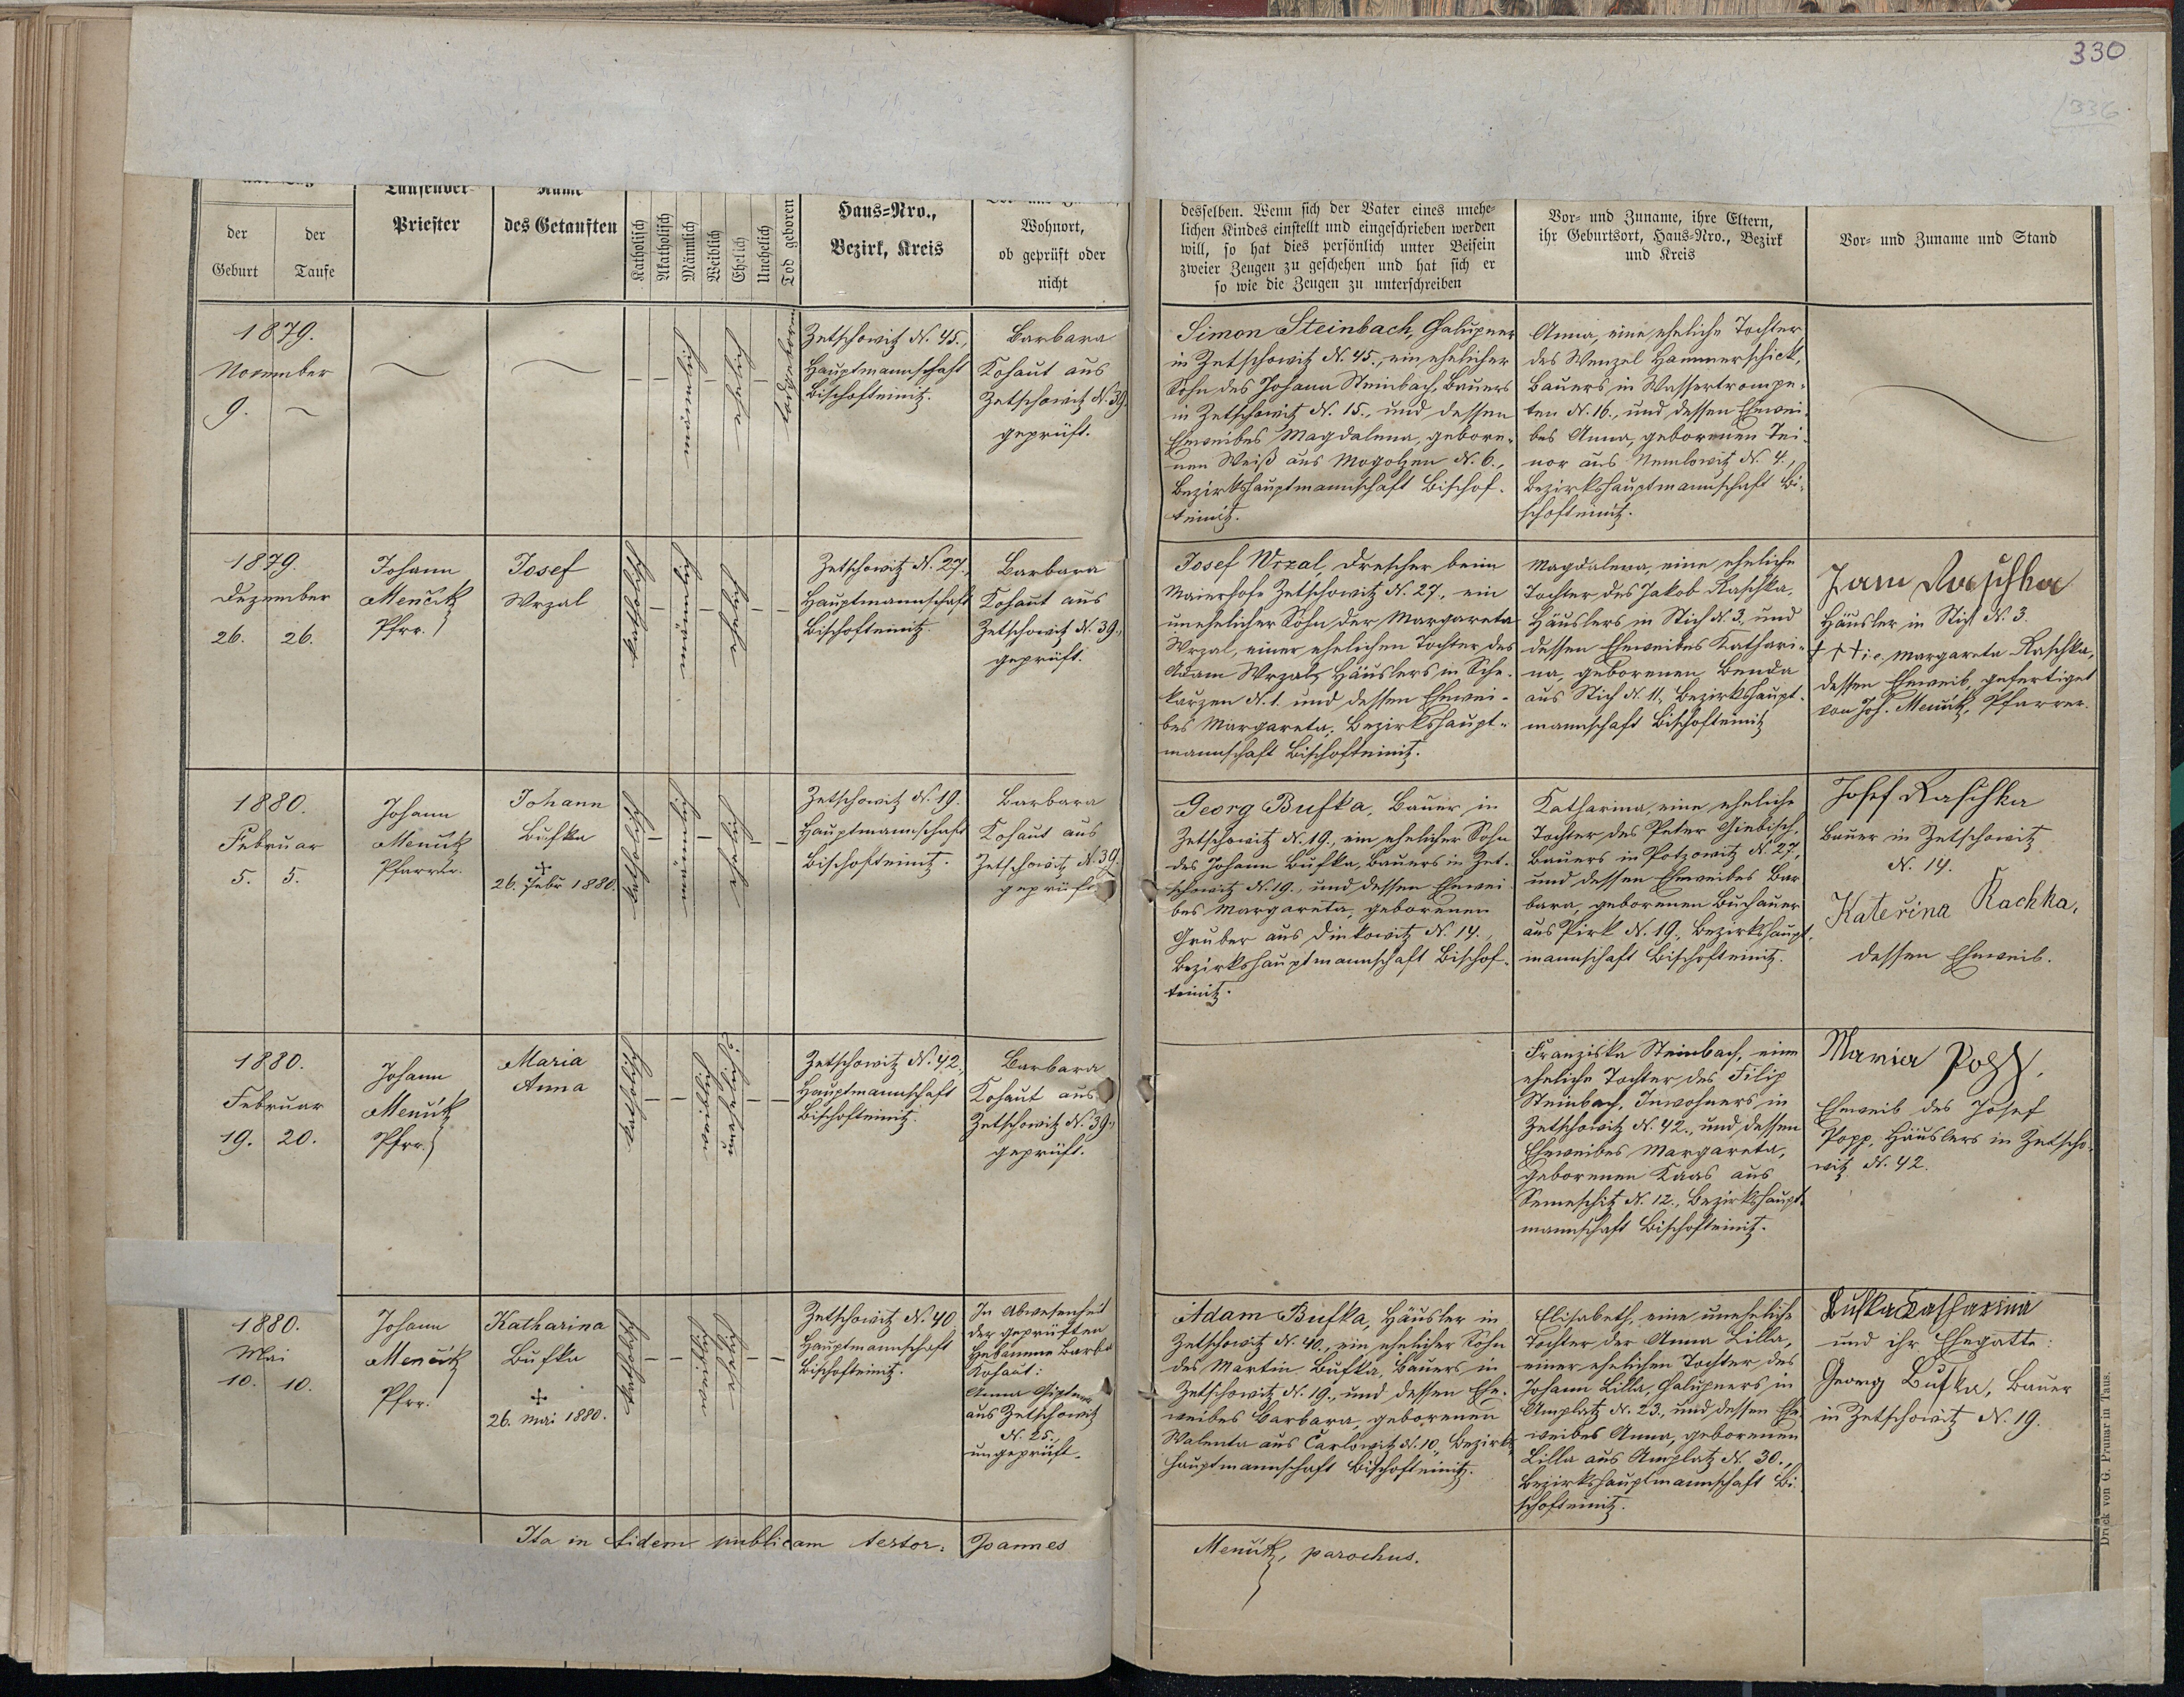 330
336
der
Geburt
der
Taufe
Priester
des Getauften
Katholisch
Akatholisch
Männlich
Weiblich
Ehelich
Unehelich
Tod geboren
Haus-Nro.,
Bezirk, Kreis
Wohnort,
ob geprüft oder
nicht
desselben. Wenn sich der Vater eines unehe-
lichen Kindes einstellt und eingeschrieben werden
will, so hat dies persönlich unter Beisein
zweier Zeugen zu geschehen und hat sich er
so wie die Zeugen zu unterschreiben
Vor- und Zuname, ihre Eltern,
ihr Geburtsort, Haus-Nro., Bezirk
und Kreis
Vor- und Zuname und Stand
1879.
November
9.
männlich
ehelich
todgeboren
Zetschowitz N. 45.,
Hauptmannschaft
Bischofteinitz.
Barbara
Kohaut aus
Zetschowitz N. 39.
geprüft.
Simon Steinbach, Chalupner
in Zetschowitz N. 45., ein ehelicher
Sohn des Johann Steinbach, Bauers
in Zetschowitz N. 15., und dessen
Eheweibes Magdalena, gebore-
nen Weiß aus Mogolzen N. 6.,
Bezirkshauptmannschaft Bischof-
teinitz.
Anna, eine eheliche Tochter
des Wenzel Hammerschick,
Bauers in Wassertrompe-
ten N. 16., und dessen Ehewei-
bes Anna, geborenen Tei-
nor aus Nemlowitz N. 4.,
Bezirkshauptmannschaft Bi-
schofteinitz.
1879.
Dezember
26. 26.
Johann
Menčik
Pfrr.
Josef
Wrzal
katholisch
männlich
ehelich
Zetschowitz N. 27.,
Hauptmannschaft
Bischofteinitz.
Barbara
Kohaut aus
Zetschowitz N. 39.,
geprüft.
Josef Wrzal, Drescher beim
Maierhofe Zetschowitz N. 27., ein
unehelicher Sohn der Margareta
Wrzal, einer ehelichen Tochter des
Adam Wrzal, Häuslers in Sche-
karzen N. 1. und dessen Ehewei-
bes Margareta, Bezirkshaupt-
mannschaft Bischofteinitz.
Magdalena, eine eheliche
Tochter des Jakob Raschka,
Häuslers in Stich N. 3. und
dessen Eheweibes Kathari-
na, geborenen Benda
aus Stich N. 11., Bezirkshaupt-
mannschaft Bischofteinitz
Raschka
Häusler in Stich N. 3.
+++ i. e. Margareta Raschka,
dessen Eheweib, gefertiget
von Joh. Menčik, Pfarrer.
1880.
Februar
5. 5.
Johann
Menčik
Pfarrer.
Johann
Bufka
+
26. Febr 1880.
katholisch
männlich
ehelich
Zetschowitz N. 19.
Hauptmannschaft
Bischofteinitz.
Barbara
Kohaut aus
Zetschowitz N. 39.
geprüft
Georg Bufka, Bauer in
Zetschowitz N. 19., ein ehelicher Sohn
des Johann Bufka, Bauers in Zet-
schowitz N. 19., und dessen Ehewei-
bes Margareta, geborenen
Gruber aus Dinkowitz N. 14.,
Bezirkshauptmannschaft Bischof-
teinitz.
Katharina, eine eheliche
Tochter des Peter Giebisch,
Bauers in Potzowitz N. 27,
und dessen Eheweibes Bar
bara, geborenen Buchauer
aus Pirk N. 19., Bezirkshaupt-
mannschaft Bischofteinitz.
Josef Raschka
Bauer in Zetschowitz
N. 14.
Kateřina Rachka,
dessen Eheweib.
1880.
Februar
19. 20.
Johann
Menčik
Pfrr.
Maria
Anna
katholisch
weiblich
unehelich
Zetschowitz N. 42.,
Hauptmannschaft
Bischofteinitz.
Barbara
Kohaut aus
Zetschowitz N. 39.,
geprüft.
Franziska Steinbach, eine
eheliche Tochter des Filip
Steinbach, Inwohners in
Zetschowitz N. 42., und dessen
Eheweibes Margareta,
geborenen Kaas aus
Semeschitz N. 12., Bezirkshaupt-
mannschaft Bischofteinitz.
Maria Popp.
Eheweib des Josef
Popp, Häuslers in Zetscho-
witz N. 42.
1880.
Mai
10. 10.
Johann
Menčik
Pfrr.
Katharina
Bufka
+
26. Mai 1880.
katholisch
weiblich
ehelich
Zetschowitz N. 40
Hauptmannschaft
Bischofteinitz.
In Abwesenheit
der geprüften
Hebamme Barba
Kohaut:
Anna
aus Zetschowitz
N. 25.,
ungeprüft.
Adam Bufka, Häusler in
Zetschowitz N. 40., ein ehelicher Sohn
des Martin Bufka, Bauers in
Zetschowitz N. 19., und dessen Ehe-
weibes Barbara, geborenen
Walenta aus Carlowitz N. 10, Bezirks-
hauptmannschaft Bischofteinitz.
Elisabeth, eine uneheliche
Tochter der Anna Lilla,
einer ehelichen Tochter des
Johann Lilla, Chalupners in
Amplatz N. 23., und dessen Ehe
weibes Anna, geborenen
Lilla aus Amplatz N. 30.,
Bezirkshauptmannschaft Bi-
schofteinitz.
Bufka Katharina
und ihr Ehegatte:
Georg Bufka, Bauer
in Zetschowitz N. 19.
Ita in fidem publicam testor. Joannes
Menčik, parochus.
Druck von G. Prunar in Taus.